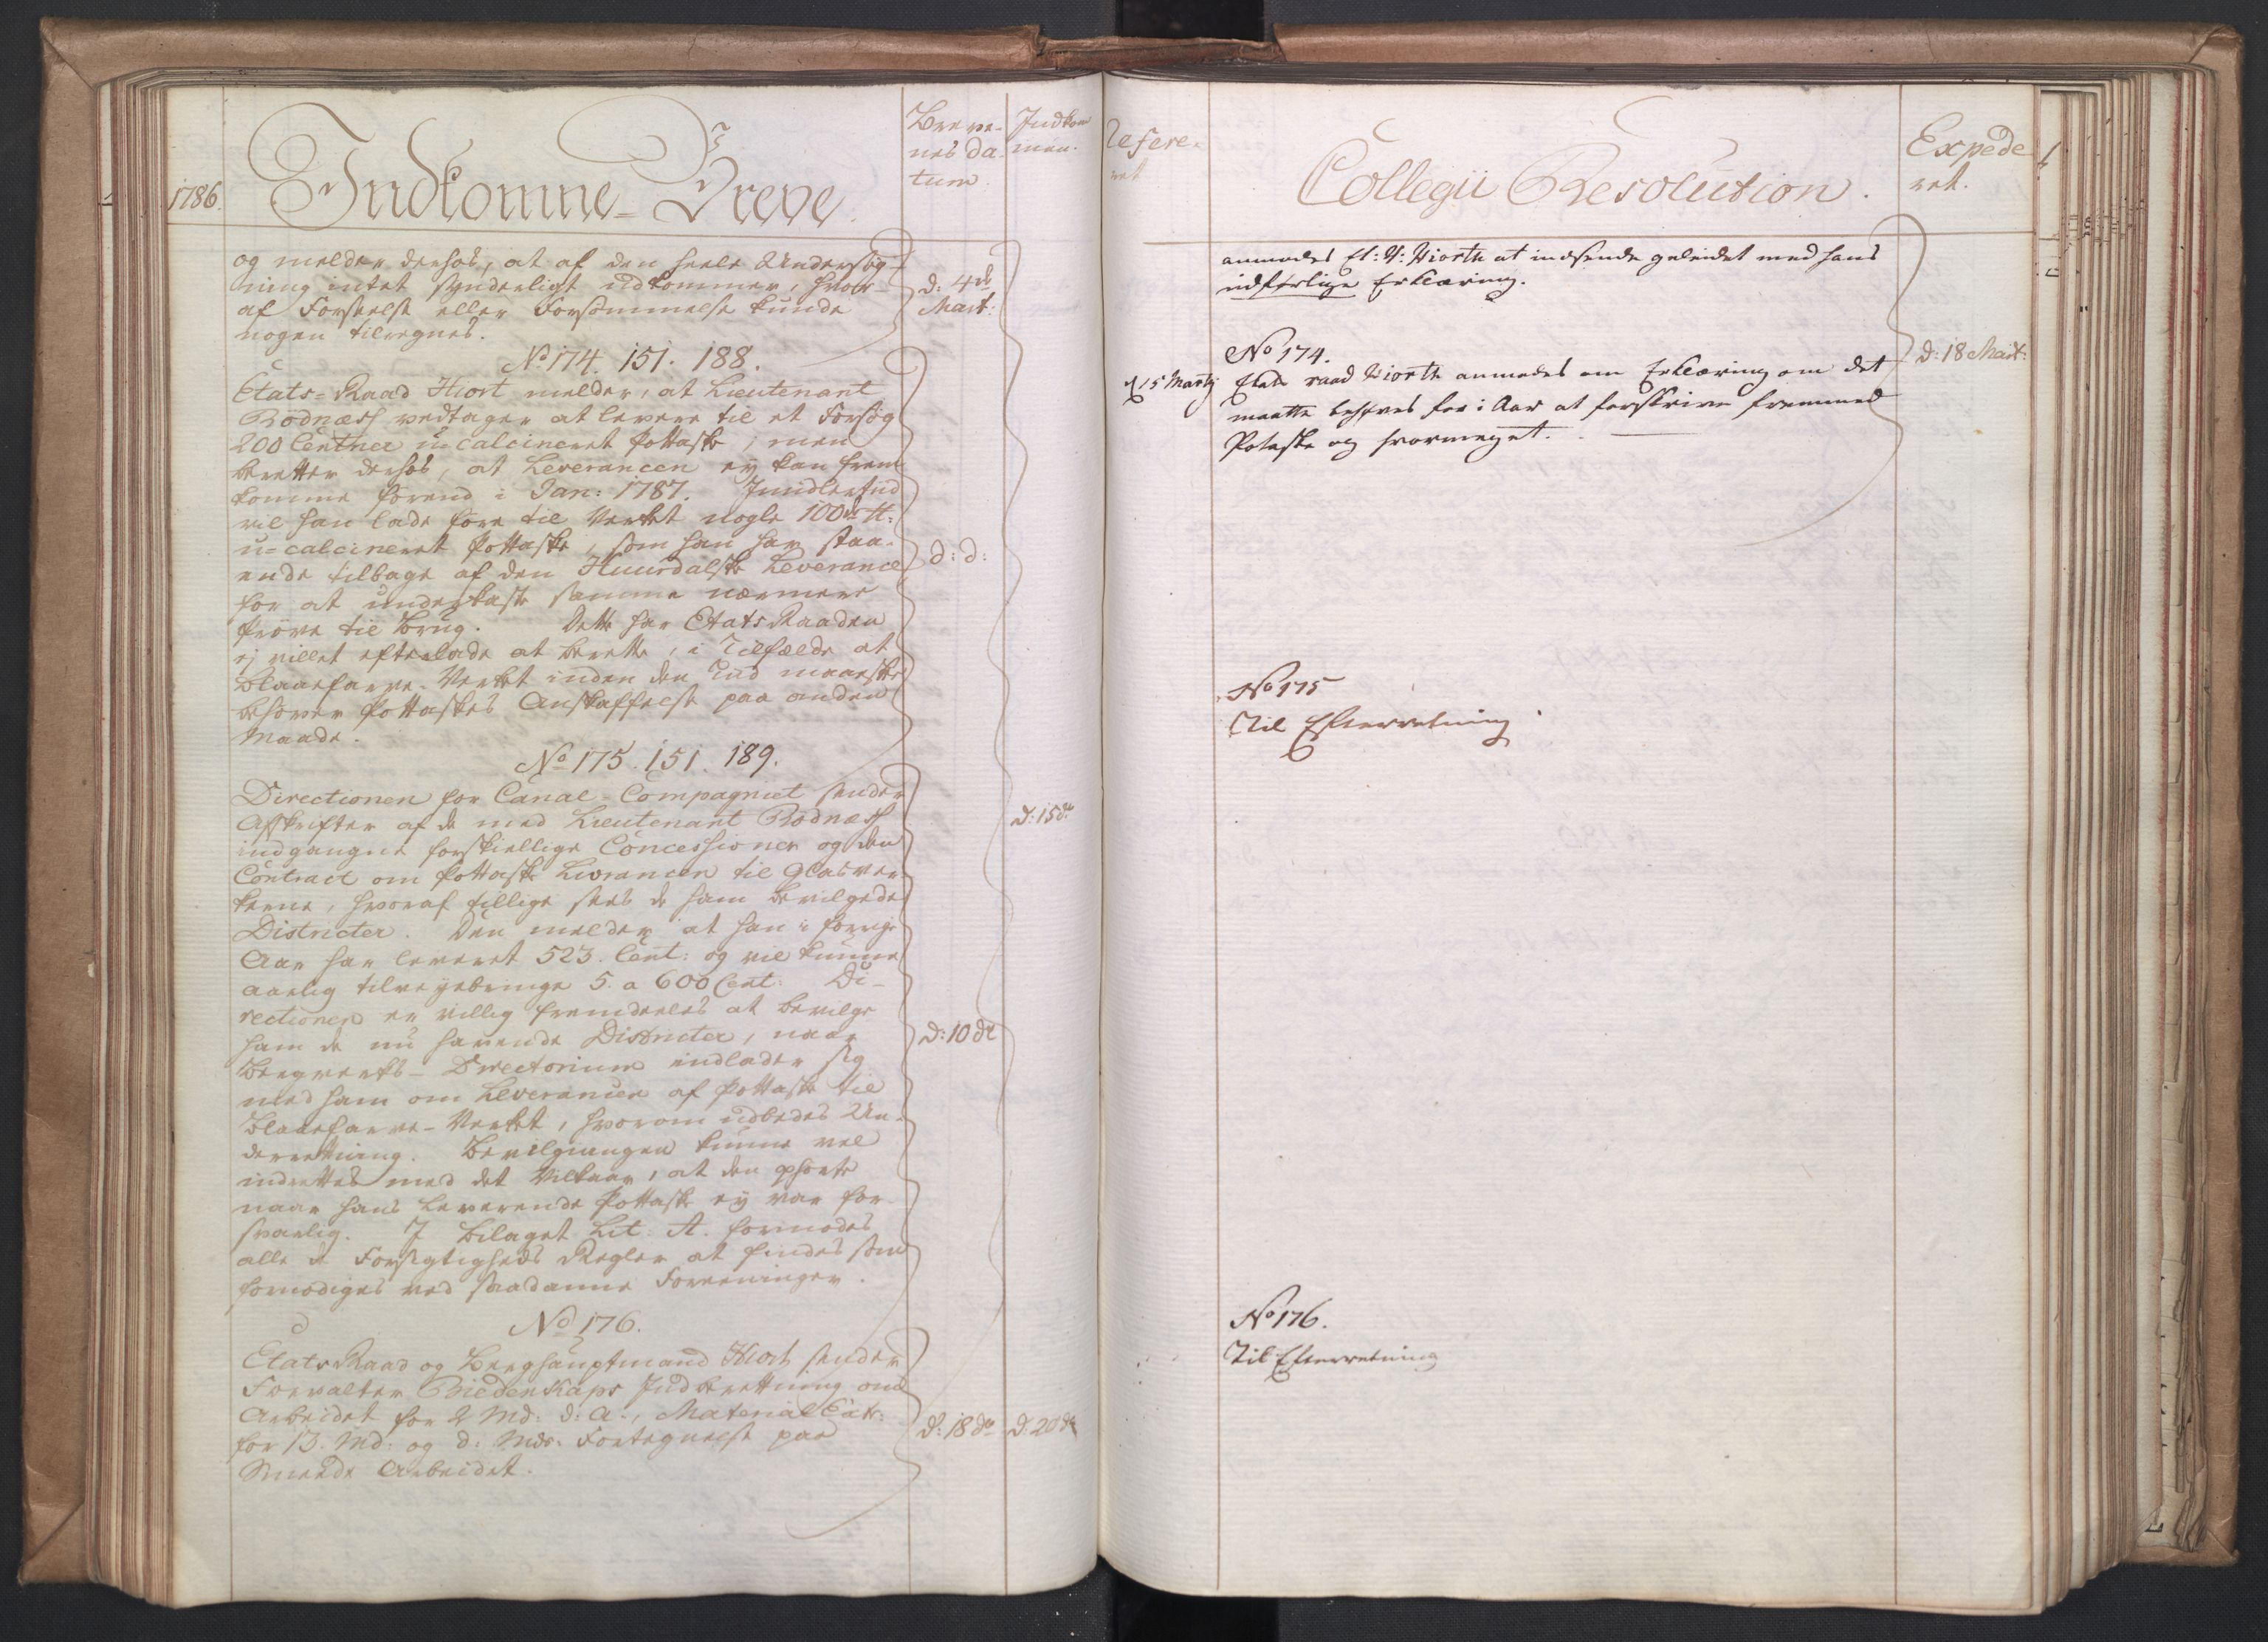 1786.
Indkomne Breve.
Breve-
nes Da-
tum
Indkom
men.
og melder derhos, at af den heele Undersøg-
ning intet synderligt udkommer, hvor-
af Forseelse eller Forsømmelse kunde
nogen tilregnes.
d: 4de
Mart:
No 174. 151. 188.
Etats-Raad Hiort melder, at Lieutenant
Rodnæss vedtager at levere til et Forsøg
200 Centner u-calcineret Pottaske, men
beretter derhos, at Leverancen ey kan frem
komme førend i Jan: 1787. Imidlertid
vil han lade føre til Verket nogle 100de tt:
u-calcineret Pottaske, som han har staa-
ende tilbage af den Huurdalske Leverance
for at underkaste samme nærmere
Prøve til Brug. Dette har EtatsRaaden
ej villet efterlade at berette, i Tilfælde at
Blaaefarve-Verket inden den Tiid maaskee
behøver Pottaskes Anskaffelse paa anden
Maade.
d: d:
No 175. 151. 189.
Directionen for Canal-Compagniet sender
Afskrifter af de med Lieutenant Rodnæss
indgangne forskiellige Concessioner og den
Contract om Pottaske Livrancen til Glasver-
kerne, hvoraf tillige sees de ham bevilgede
Districter. Den melder at han i forrige
Aar har leveret 523. Cent: og vil kunne
aarlig tilvejebringe 5. a 600 Cent: Di-
rectionen er villig fremdeeles at bevilge
ham de nu havende Districter, naar
Bergverks-Directorium indlader sig
med ham om Leverancen af Pottaske til
Blaaefarve-Verket, hvorom udbedes Un-
derretning. Bevilgningen kunne vel
indrettes med det Vilkaar, at den ophørte
naar hans leverende Pottaske ey var for-
svarlig. I Bilaget Lit: A. formodes
alle de Forsigtigheds Regler at findes som
fornødiges ved saadanne Foreeninger.
d: 10de
d: 15de
No 176.
EtatsRaad og Berghauptmand Hiort sender
Forvalter Biedenkaps Indberetning om
Arbeidet for 2 Md: d: A:, Material
for 13. Md: og d: Mds. Fortegnelse paa
Smeede Arbeidet.
d: 18de
d: 20de
Refere-
ret
Collegii Resolution.
Expede
ret.
anmodes Et: R: Hiorth at indsende geleidet med hans
udførlige Erklæring.
No 174.
d 15 Martj
Etats raad Hiorth anmodes om Erklæring om det
maatte behøves for i Aar at forskrive fremmed
Potaske og hvormeget.
d: 18 Mart:
No 175
Til Efterretning
No 176.
Til Efterretning